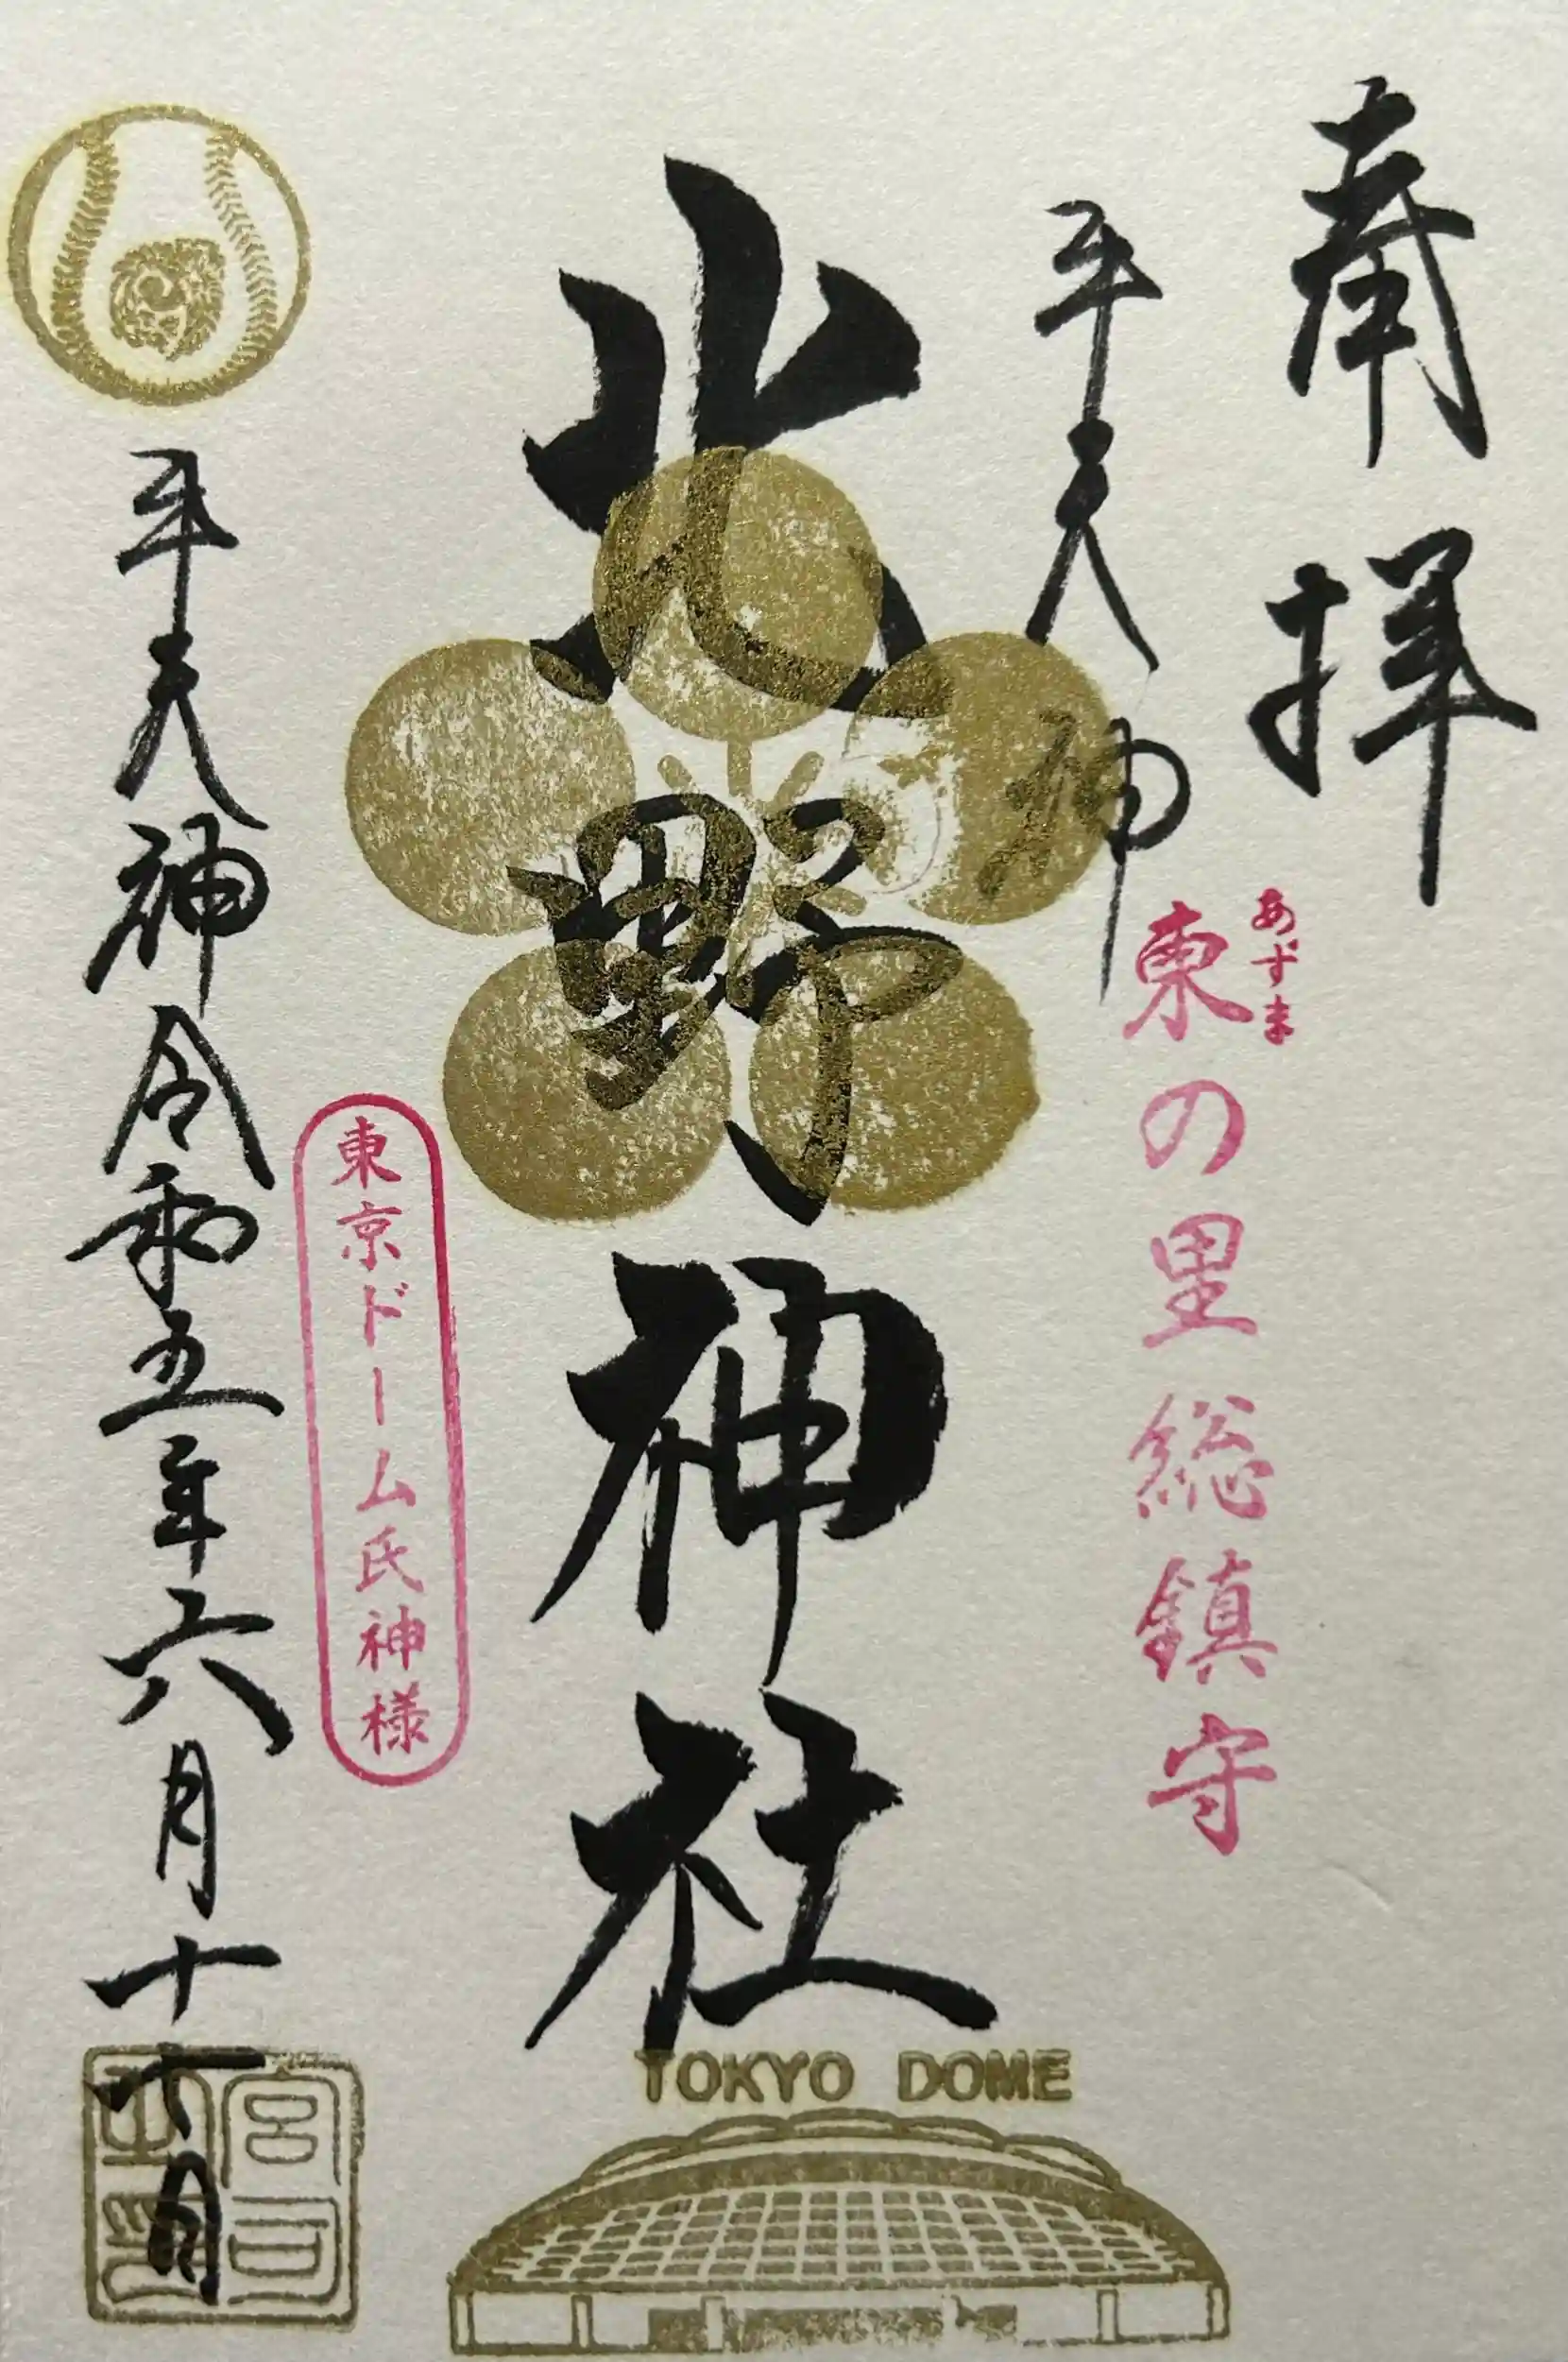 奉拝
牛天神
あずま
東の里総鎮守
北野神社
東京ドーム氏神様
牛天神令和五年六月十七日
宮司之印
TOKYO DOME